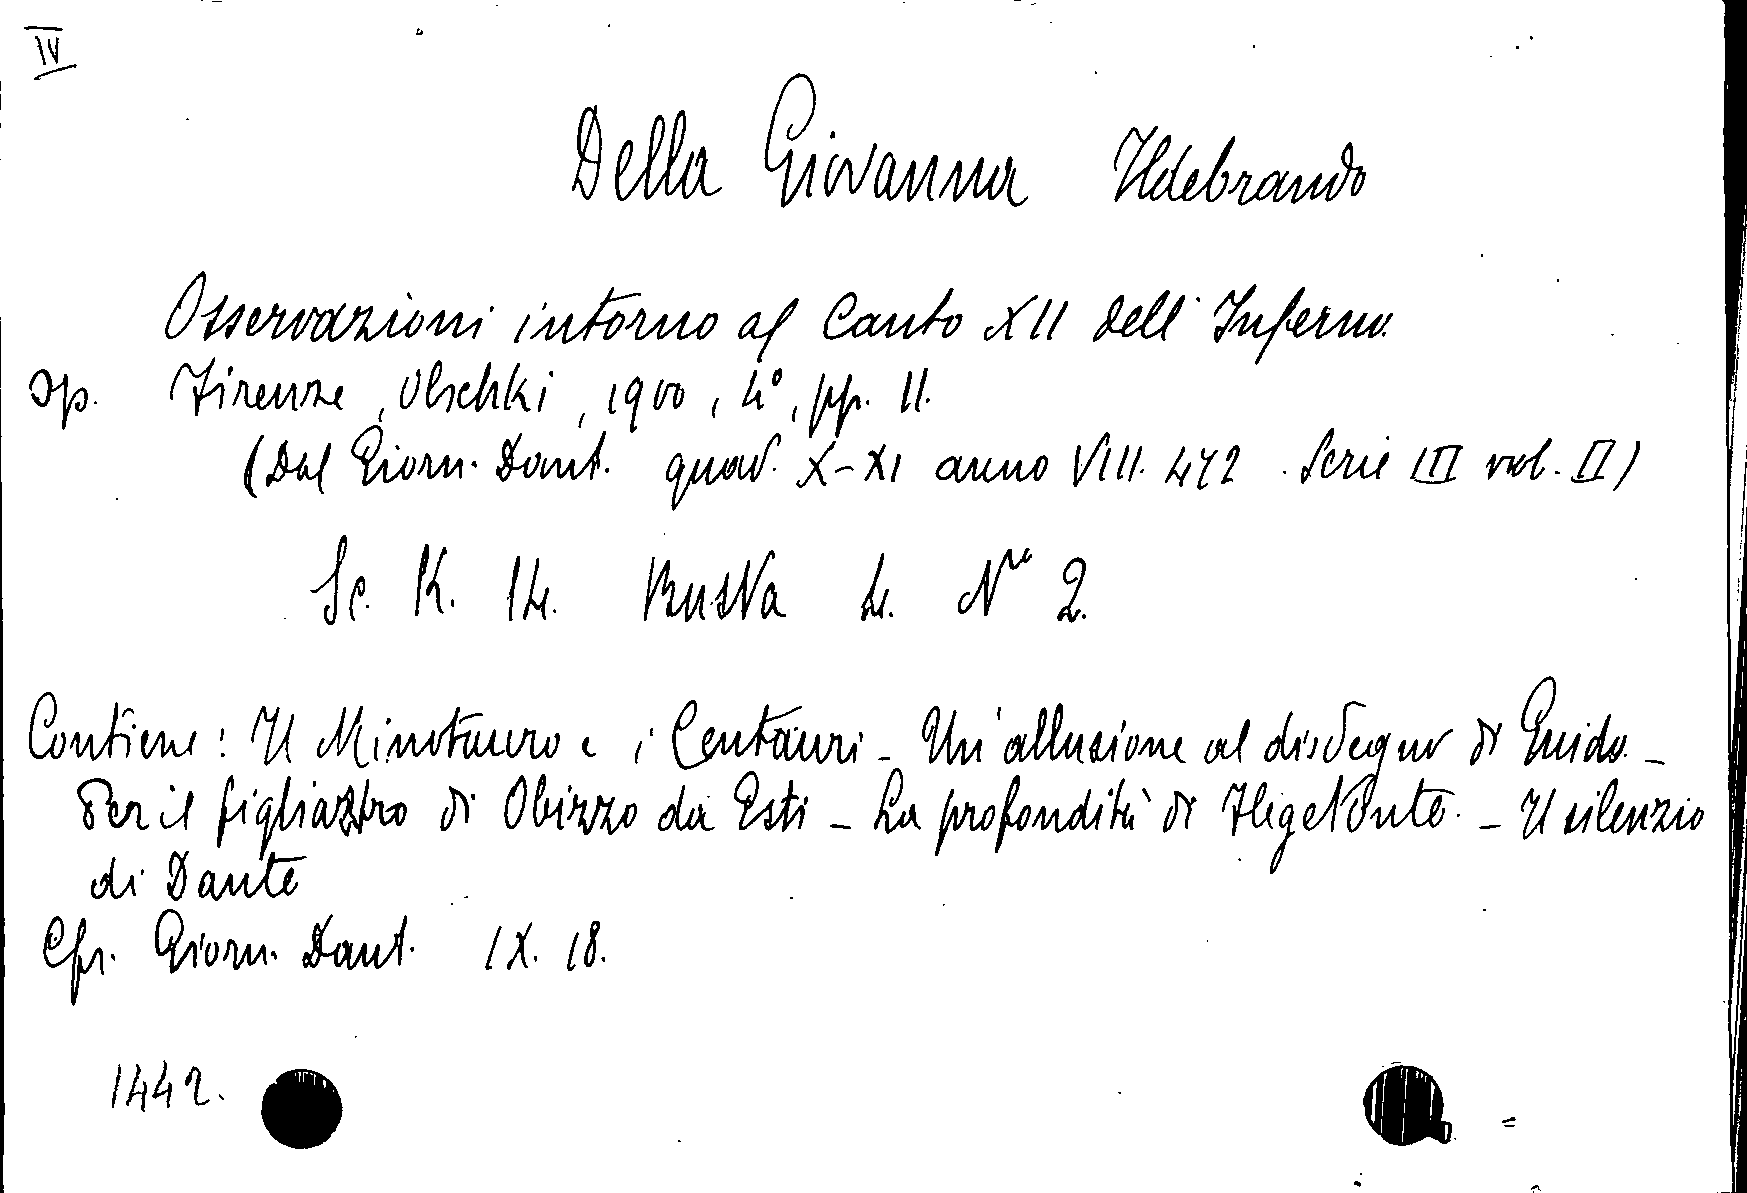 IV
Della Giovanna Ildebrando
Osservazioni intorno al Canto XII dell'Inferno.
Op. Firenze, Olschki, 1900, 4°, pp. 11.
(Dal Giorn. Dant. quad. X-XI anno VIII. 472. Serie III vol. II)
Sc. K. 14. Busta 4. Nro 2.
Contiene: Il Minotauro e i Centauri - Un'allusione al disdegno di Guido. -
Per il figliastro di Obizzo da Esti - La profondità di Flegetonte. - Il silenzio
di Dante
Cfr. Giorn. Dant. IX. 18.
1442.